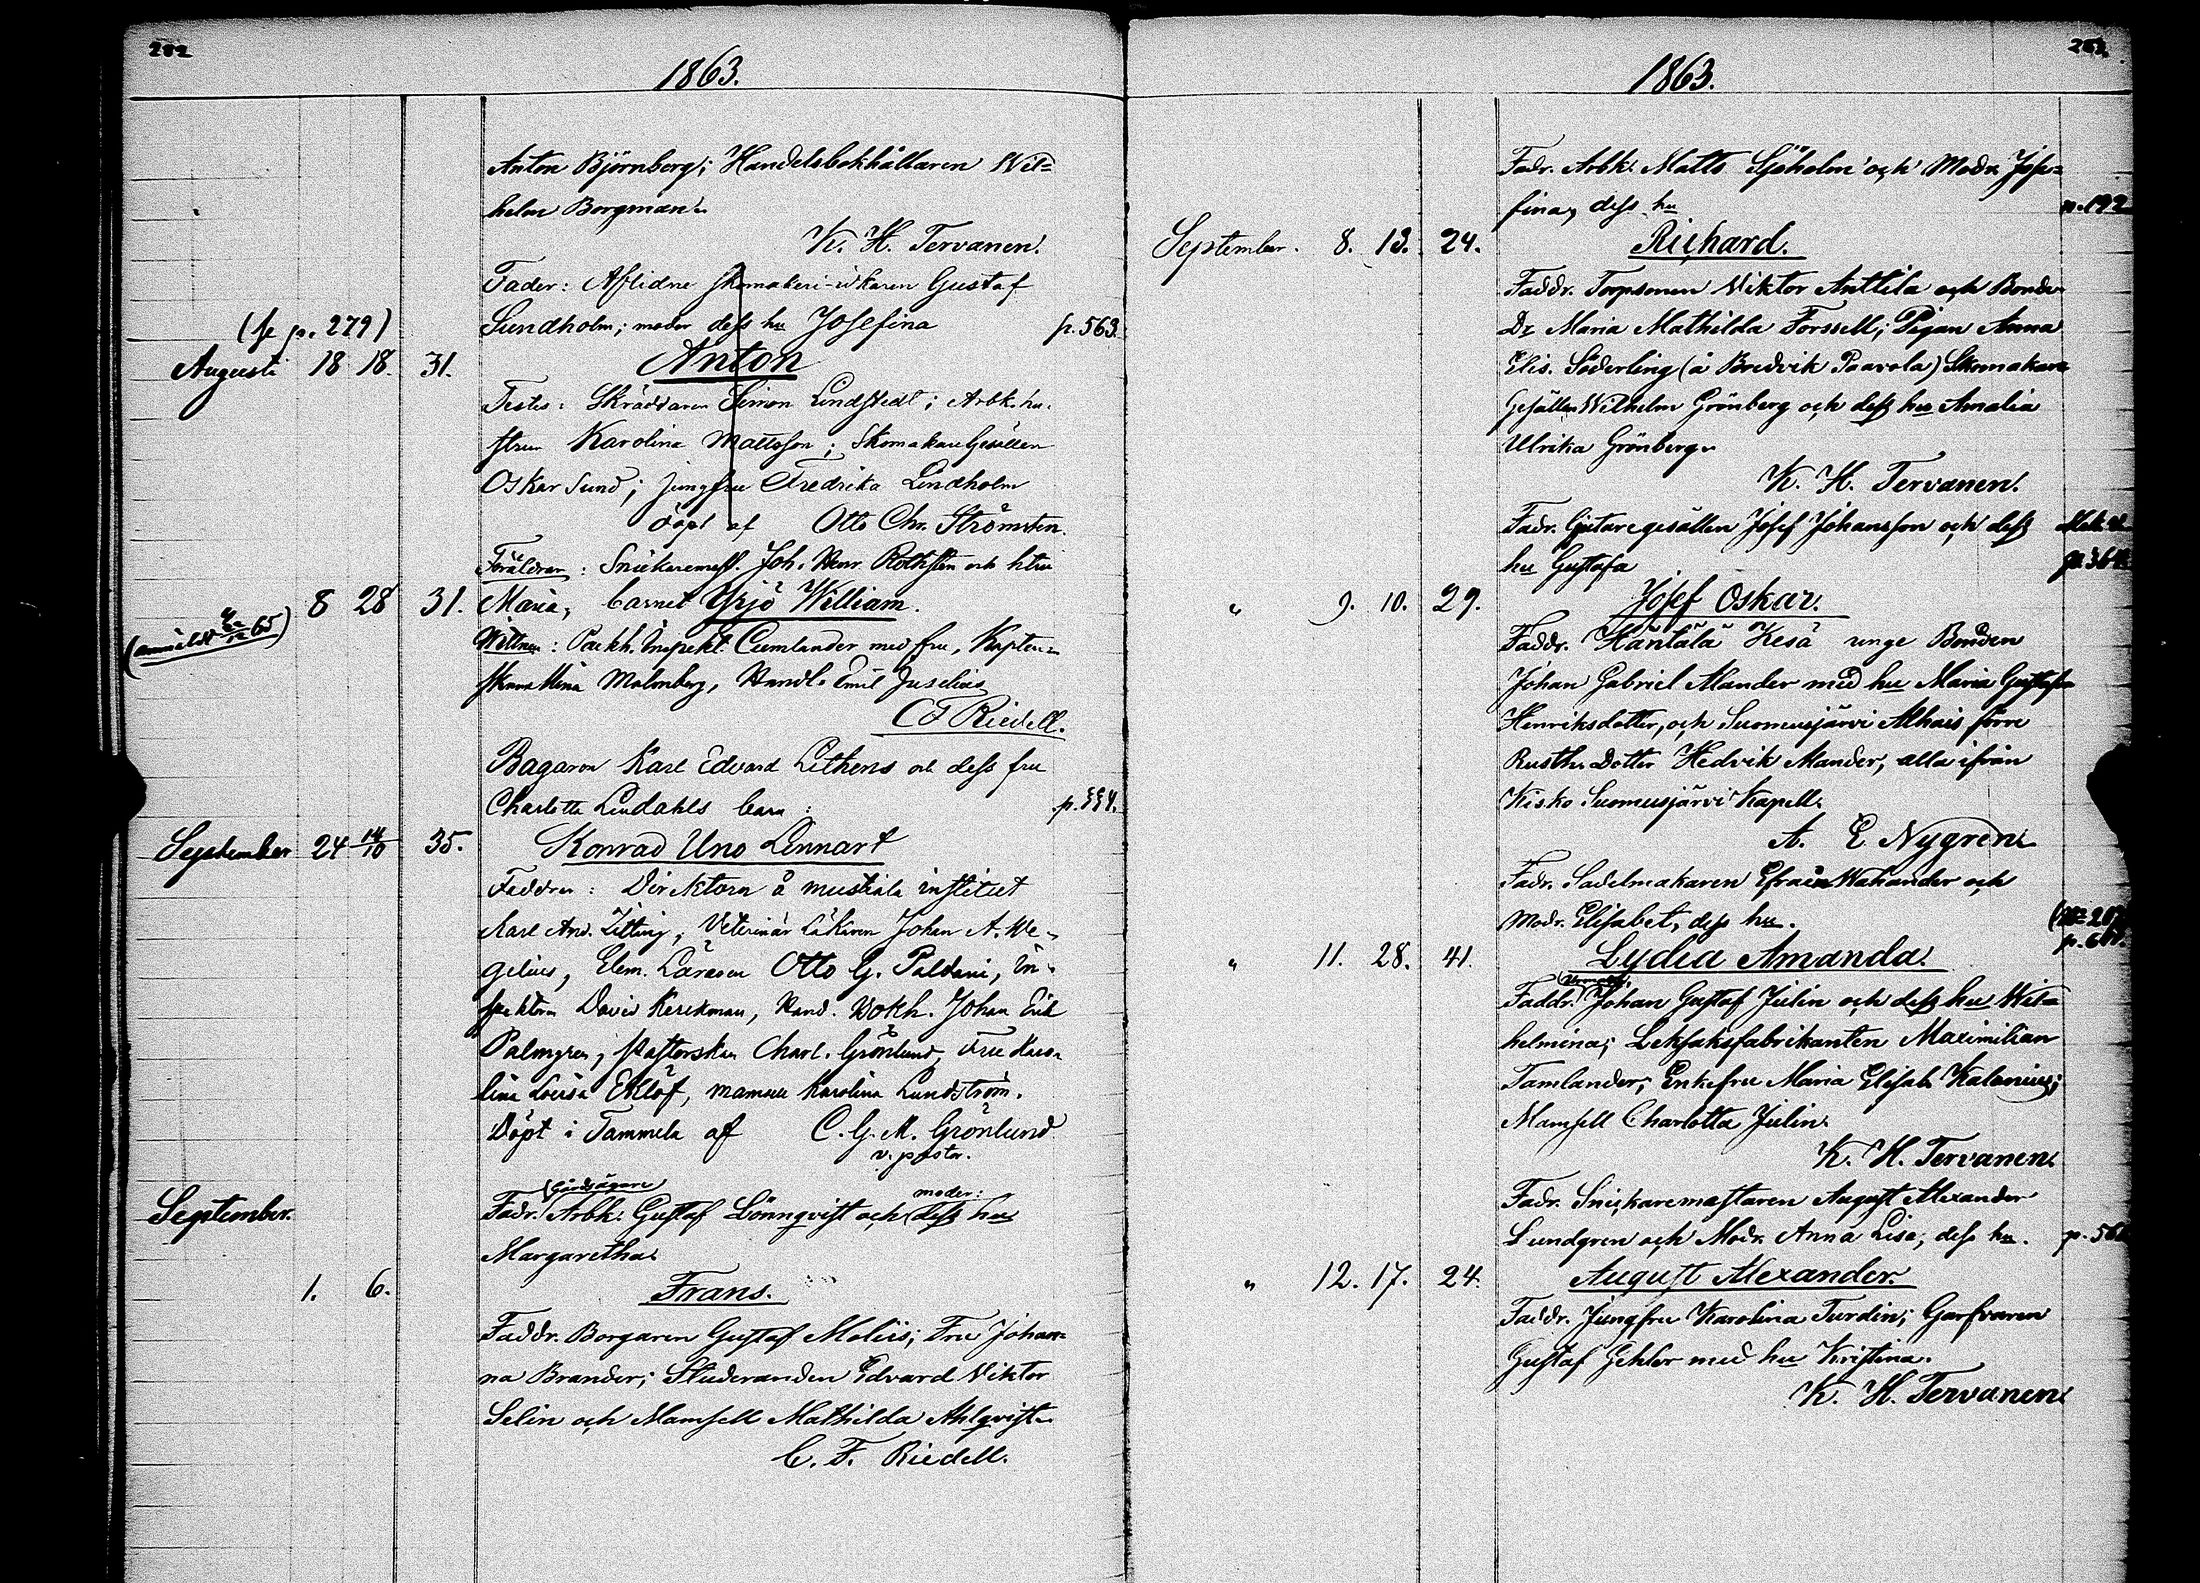 282
1863.
Anton Björnberg; Handelsbokhållaren Wil=
helm Borgman.
K. H. Tervanen.
Fader: Aflidne skomakeri-idkaren Gustaf
(se p. 279) Sundholm; moder dess hu Josefina p. 563.
Augusti 18 18. 31. Anton
Testes: Skräddaren Simon Lindstedt; Arbk. hu-
strun Karolina Mattsson; Skomakare Gesällen
Oskar Sund; jungfru Fredrika Lindholm
döpt af Otto Chr. Strömsten.
Föräldrar: Snickaremest. Joh. Henr. Rothsten och hstru
8 28 31. Maria, barnet Yrjö William.
(anmäldt 65)
Wittnen: Packh. Inspekt. Cumlander med fru, Kapten-
skan Mina Malmberg, Handl. Emil Juselius
C F Riedell.
Bagaren Karl Edvard Lithens och dess fru
Charlotta Lindahls barn: p. 554.
September 24 14/10 35. Konrad Uno Lennart
Faddrar: Direktorn å mustiala institut
Karl And. Zitting, Veterinär Läkaren Johan A. We-
gelius, Elem. Läraren Otto G. Paldani, In-
spektorn David Kerckman, Hand. Bokh. Johan Erik
Palmgren, Pastorskan Charl. Grönlund, Fru Karo-
lina Lovisa Eklöf, mamsell Karolina Lundström.
Döpt i Tammela af C. G. M. Grönlund
v. pastor.
Gårdsägare moder:
September. Fadr. Arbk. Gustaf Lönnqvist och dess hu
Margaretha.
1. 6. Frans.
Faddr. Borgaren Gustaf Moliis; Fru Johan=
na Brander; Studeranden Edvard Viktor
Selin och Mamsell Mathilda Ahlqvist.
C. F. Riedell.
283
1863.
Fadr. Arbk. Matts Sjöholm och Modr. Jose=
fina, dess hu p. 192
September. 8. 13. 24. Richard.
Faddr. Torpsonen Viktor Anttila och Bonde
Dr Maria Mathilda Forssell; Pigan Anna
Elis. Söderling (å Bredvik Paavola) Skomakare
Gesällen Wilhelm Grönberg och dess hu Amalia
Ulrika Grönberg.
K. H. Tervanen.
Fadr. Gjutaregesällen Josef Johansson och dess
hu Gustafa p. 364.
" 9. 10. 29. Josef Oskar.
Faddr. Häntälä Kesä unge Bonden
Johan Gabriel Mander med hu Maria Gustafa
Henriksdotter, och Suomusjärvi Alhais förre
Rusth. Dotter Hedvik Mander, alla ifrån
Kisko Suomusjärvi Kapell.
A. E Nygren.
Fadr. Sadelmakaren Efraim Wahander och
Modr. Elisabet, dess hu.
" 11. 28. 41. Lydia Amanda.
Faddr. Johan Gustaf Julin och dess hu Wil=
helmina; Leksaksfabrikanten Maximilian
Tamlander; Enkefru Maria Elisab. Kalonius;
Mamsell Charlotta Julin.
K. H. Tervanen.
Fadr. Snickaremästaren August Alexander
Lundgren och Modr. Anna Lisa, dess hu. p. 56
" 12. 17. 24. August Alexander.
Faddr. Jungfru Karolina Turdin; Garfvaren
Gustaf Gehlor med hu Kristina.
K. H. Tervanen.